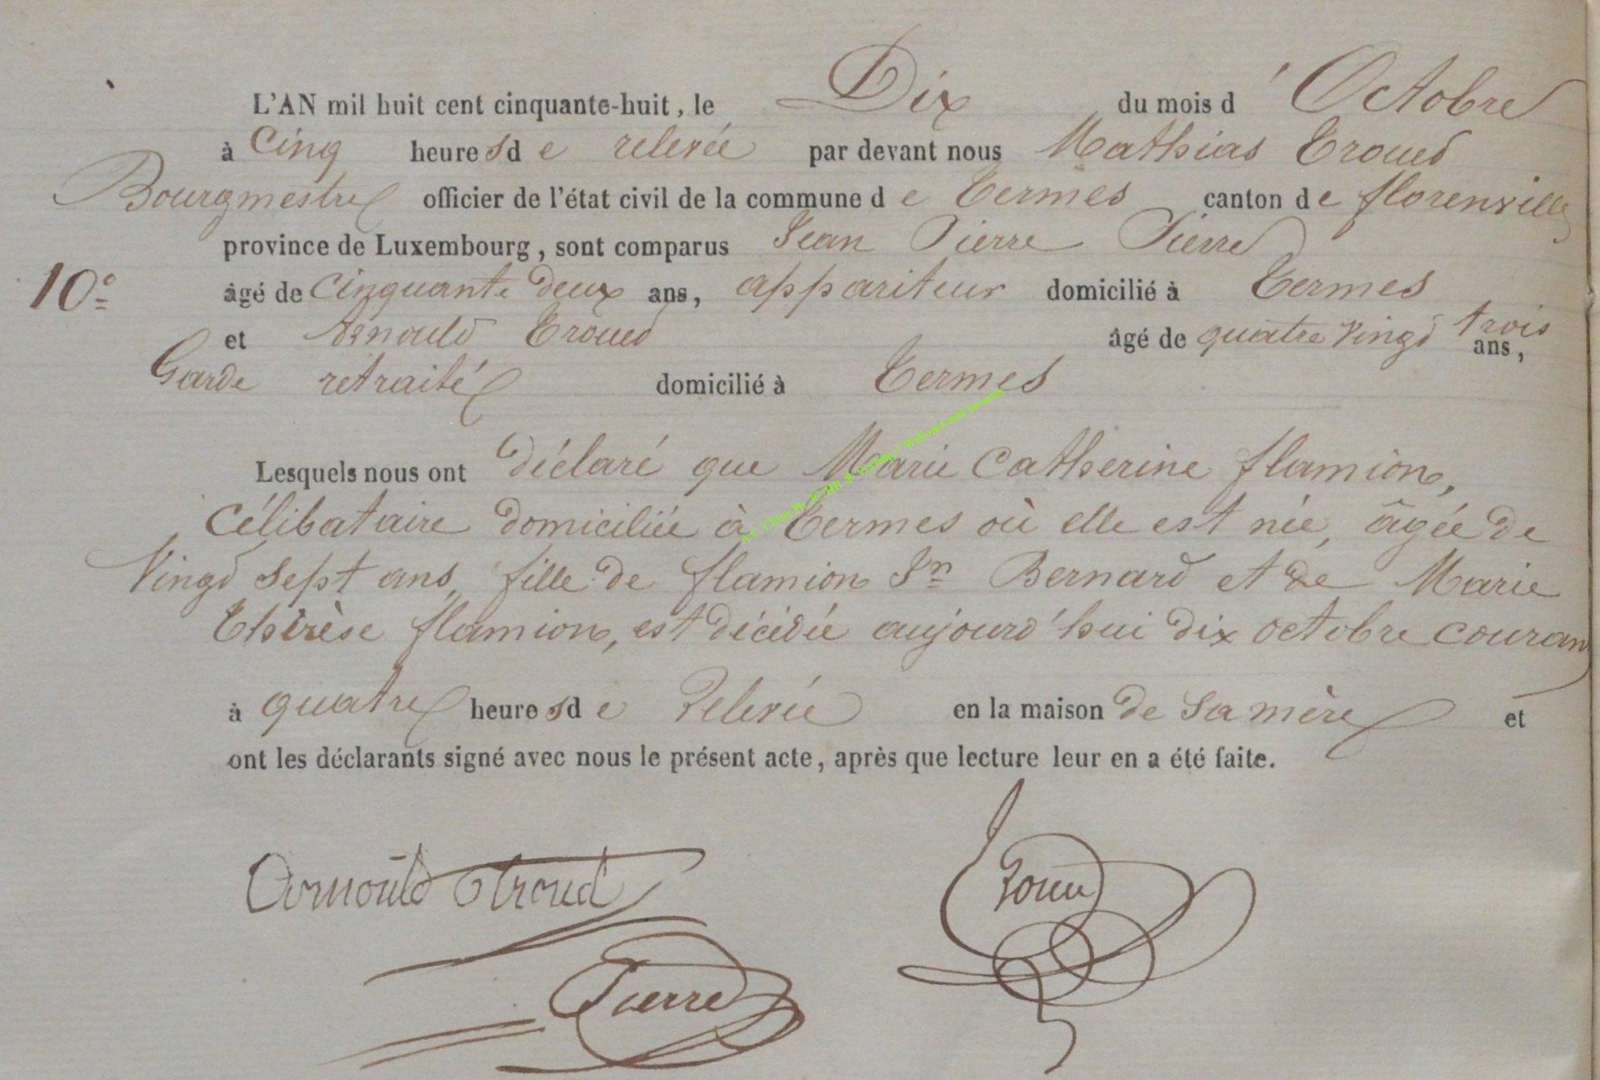 L'AN mil huit cent cinquante-huit, le Dix du mois d'Octobre
à cinq heures de relevée par devant nous Mathias Troued
Bourgmestre officier de l'état civil de la commune de Termes canton de florenville
province de Luxembourg, sont comparus Jean Pierre Pierre
10e âgé de cinquante deux ans, appariteur domicilié à Termes
et Arnould Troued âgé de quatre vingd trois ans,
Garde retraité domicilié à Termes
Lesquels nous ont déclaré que Marie Catherine flamion,
Célibataire domiciliée à Termes où elle est née, âgée de
Vingd Sept ans, fille de flamion Jn Bernard et de Marie
Thérèse flamion, est décédée aujourd'hui dix octobre couran
à quatre heures de Relevée en la maison de sa mère et
ont les déclarants signé avec nous le présent acte, après que lecture leur en a été faite.
Arnould Troued
Pierre